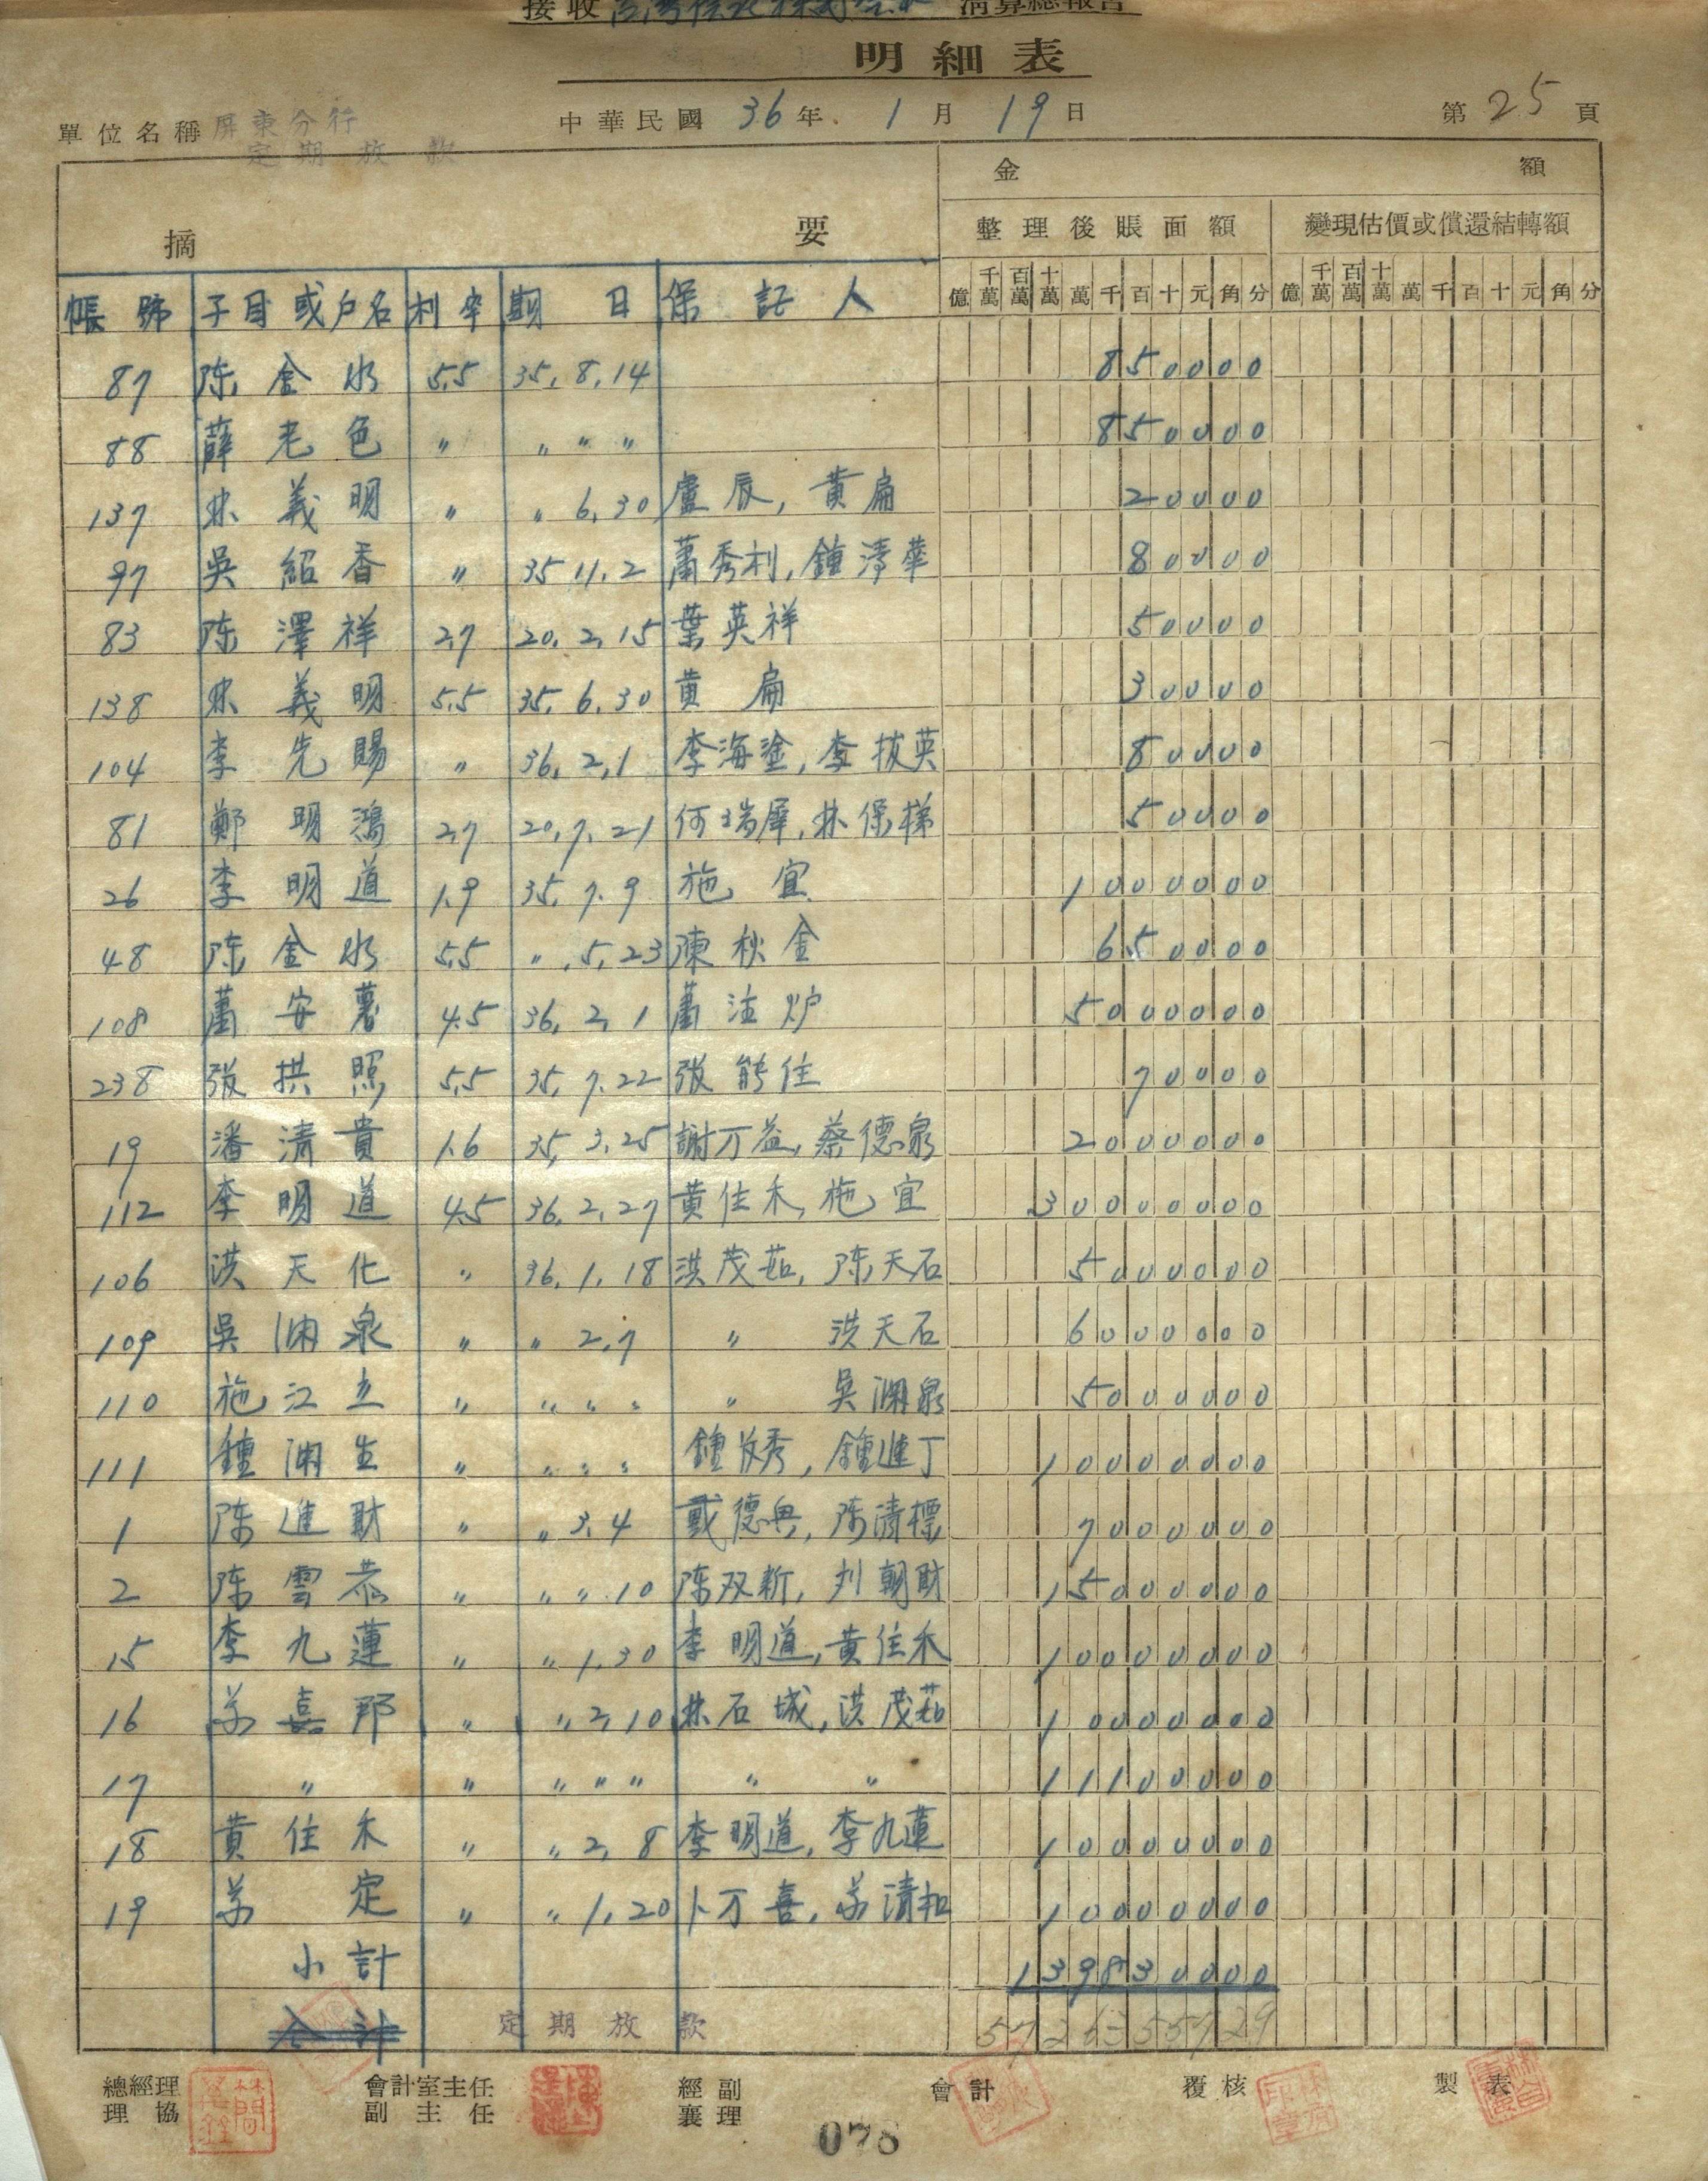 接收 清算總報告
明細表
單位名稱 屏東分行 中華民國 36年 1月 19日 第 25 頁
定期放款
摘 要 金 額
整理後賬面額 變現估價或償還結轉額
億 千萬 百萬 十萬 萬 千 百 十 元 角 分 億 千萬 百萬 十萬 萬 千 百 十 元 角 分
帳號 子目或户名 利率 期日 保証人
87 陈金水 5.5 35.8.14 850000
88 薛老色 〃 〃 〃 〃 850000
137 林義明 〃 〃 6.30 盧辰, 黄扁 20000
97 吳紹香 〃 35 11.2 蕭秀利, 鍾淂華 80000
83 陈澤祥 2.7 20.2.15 葉英祥 50000
138 林義明 5.5 35.6.30 黄扁 30000
104 李先賜 〃 36.2.1 李海塗, 李拔英 80000
81 鄭明鴻 2.7 20.7.21 何瑞犀, 林保梯 50000
26 李明道 1.9 35.7.9 施宜 1000000
48 陈金水 5.5 〃.5.23 陳秋金 650000
108 蕭安薯 4.5 36.2.1 蕭注炉 5000000
238 張拱照 5.5 35.7.22 張能住 70000
19 潘清貴 1.6 35.3.25 謝丁益, 蔡德泉 2000000
112 李明道 4.5 36.2.27 黄住禾, 施宜 30000000
106 洪天化 〃 36.1.18 洪茂茹, 陈天石 5000000
109 吳渊泉 〃 〃 2.7 〃 洪天石 6000000
110 施江立 〃 〃 〃 〃 〃 吳渊泉 5000000
111 鍾渊生 〃 〃 〃 〃 鍾欣秀, 鍾進丁 10000000
1 陈進財 〃 〃 3.4 戴德典, 陈清標 7000000
2 陈雲恭 〃 〃 〃.10 陈双新, 刘朝財 15000000
15 李九蓮 〃 〃 1.30 李明道, 黄住禾 10000000
16 芳喜邦 〃 〃 2.10 林石城, 洪茂茹 10000000
17 〃 〃 〃 〃 〃 〃 〃 11100000
18 黄住禾 〃 〃 2.8 李明道, 李九蓮 10000000
19 芳定 〃 〃 1.20 卜丁喜, 芳清和 10000000
小計 139830000
合計 定期放款
總經理 會計室主任 經副 會計 覆核 製表
理協 副主任 襄理
078